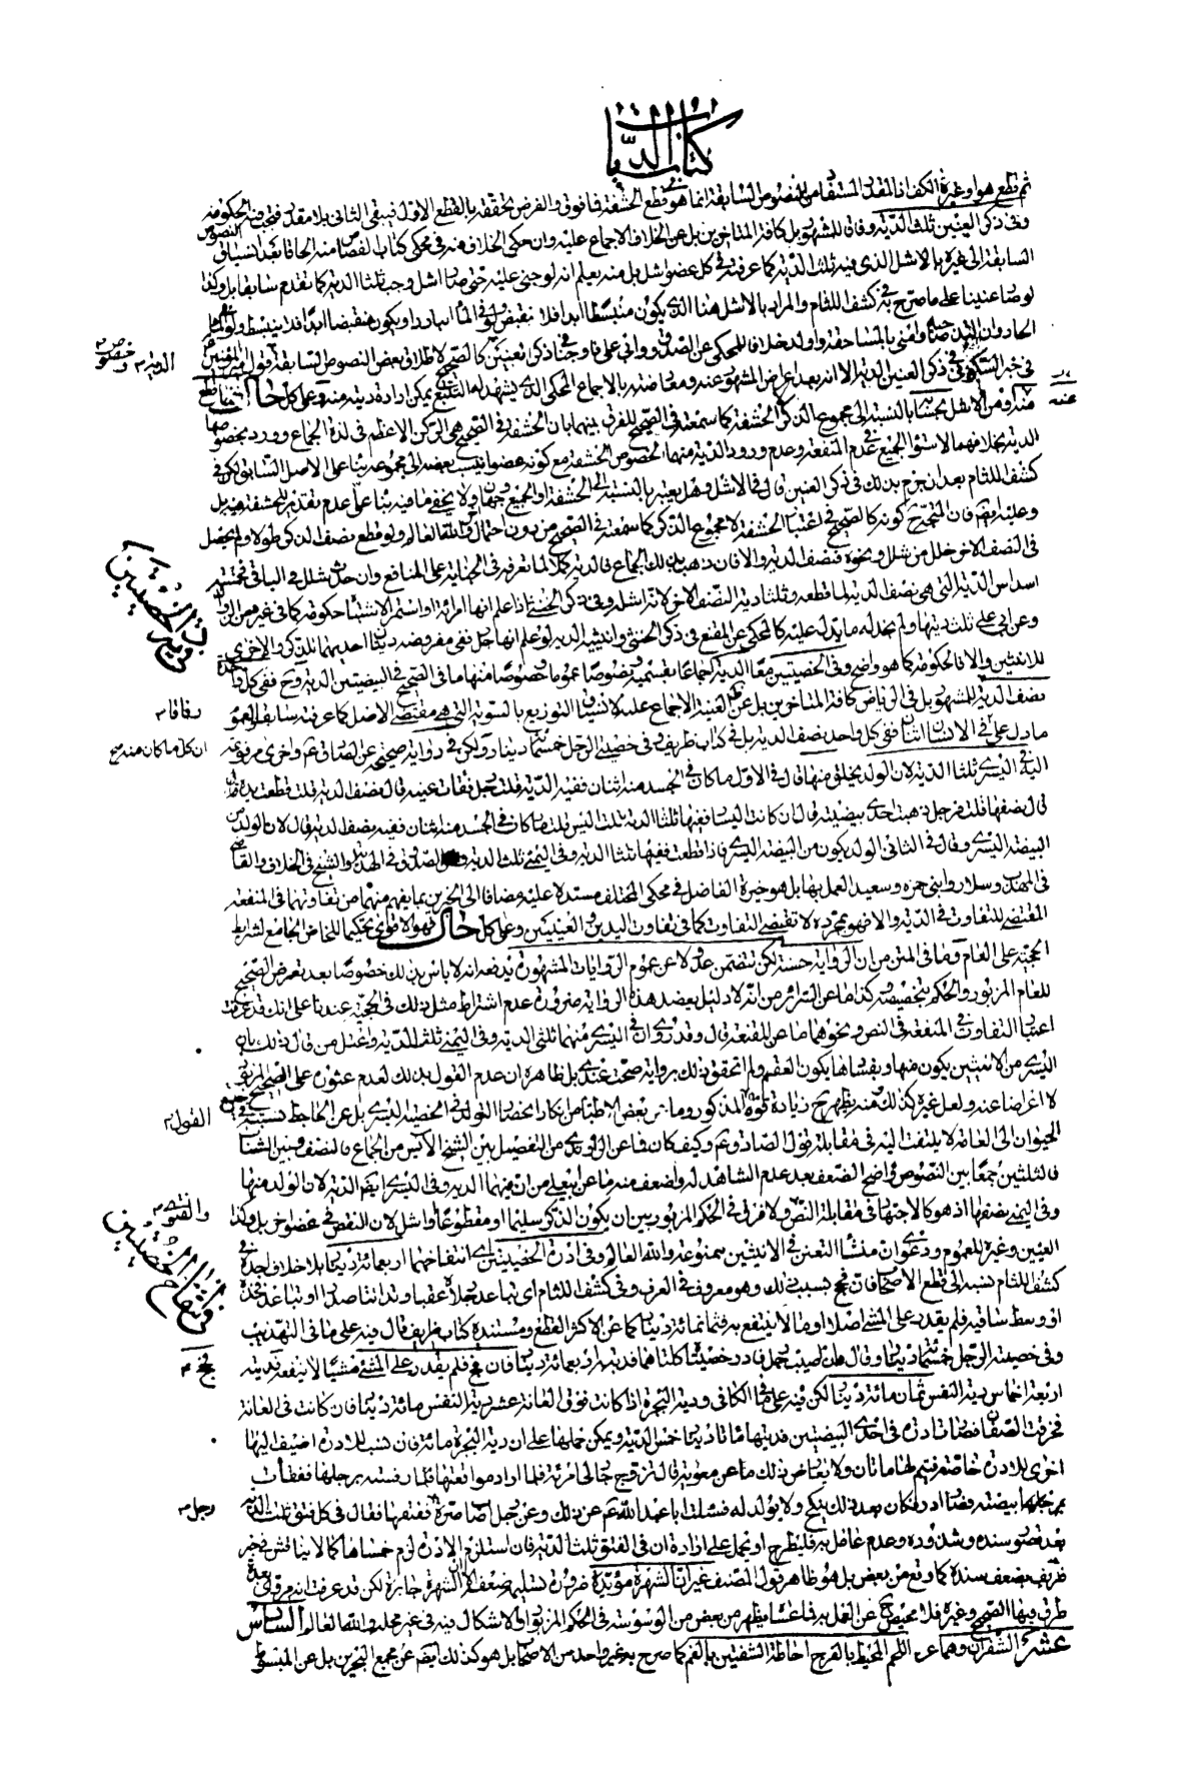 كتاب الديات
ثم قطع هو او غيره الكف اذ المقدر المستفاد من النصوص السابقة انما هو قطع الحشفة فما فوق والفرض تحققه بالقطع الاول فيبقى الثاني بلا مقدر فتجب فيه الحكومة
وفي ذكر العنين ثلث الدية وفاقا للمشهور بل كافة المتاخرين بل عن الخلاف الاجماع عليه وان حكى الخلاف منه في محكي كتاب القصاص منه
السابقة الى غيره بالاشل الذي فيه ثلث الدية كما عرفته في كل عضو اشل بل منه يعلم انه لو جنى عليه حتى صار اشل وجب ثلثا الدية كما تقدم سابقا بل وكذا
لو صار عنينا على ما صرح به في كشف اللثام والمراد بالاشل هنا الذي يكون منبسطا ابدا فلا ينقبض ولو في الماء البارد او يكون منقبضا ابدا فلا ينبسط ولو في الماء
الحار وان التذ صاحبه وامنى بالمساحقة واولد خلافا للمحكي عن الصدوق وابي علي فاوجبا في ذكر العنين كالصحيح لاطلاق بعض النصوص السابقة
في خبر السكوني في ذكر العنين الدية الا انه بعد اعراض المشهور عنه ومعارضته بالاجماع المحكي الذي يشهد له التتبع يمكن ارادة ديته منه وعلى كل حال
منه ومن الاشل بحسابه بالنسبة الى مجموع الذكر لا الحشفة كما سمعته في الصحيح للفرق بينهما بان الحشفة في الصحيح هي الركن الاعظم في لذة الجماع وورود
الدية بخلافهما لاستواء الجميع في عدم المنفعة وعدم ورود الدية منهما لخصوص الحشفة مع كونه عضوا ينسب بعضه الى مجموعه بناء على الاصل السابق لكن في
كشف اللثام بعد ان جزم بذلك في ذكر العنين قال في الاشل وهل يعتبر بالنسبة الى الحشفة او الجميع وجهان ولا يخفى ما فيه بناء على عدم تقدير للحشفة فيه بل
وعليه ايضا فان المتجه كونه كالصحيح في اعتبار الحشفة لا مجموع الذكر كما سمعته في الصحيح من دون احتمال والله العالم ولو قطع نصف الذكر طولا ولم يحصل
في النصف الاخر خلل من شلل ونحوه فنصف الدية والا فان ذهب بذلك الجماع فالدية كملا لما تعرفه في الجناية على المنافع وان حدث شلل في الباقي فخمسة
اسداس الدية التي هي نصف الدية لما قطعه وثلثا دية النصف الاخر لانه اشله وفي ذكر الخنثى اذا علم انها امراة او استمر الاشتباه حكومة كما في غيره من الزوائد
وعن ابي علي ثلث ديتها ولم نجد له ما يدل عليه كالمحكي عن المقنع في ذكر الخنثى وانثييه الدية لو علم انها رجل ففي مفروضه ديتان احديهما للذكر والاخرى
للانثيين والا فالحكومة كما هو واضح وفي الخصيتين معا الدية اجماعا بقسميه ونصوصا عموما وخصوصا منها ما في الصحيح في البيضتين الدية وفي كل واحدة
نصف الدية للمشهور بل في الرياض كافة المتاخرين بل عن الغنية الاجماع عليه لاقتضاء التوزيع بالسوية التي هي مقتضى الاصل كما عرفته سابقا
ما دل على في الانسان اثنان ففي كل واحد نصف الدية بل في كتاب ظريف في خصية الرجل خمسمائة دينار ولكن في رواية صحيحة عن الصادق ع واخرى مرفوعة
اليه في اليسرى ثلثا الدية لان الولد يخلق منها قال في الاول ما كان في الجسد منه اثنان ففيه الدية قلت رجل فقئت عينه قال نصف الدية قلت قطعت يده
قال نصفها قلت فرجل ذهبت احدى بيضتيه قال ان كانت اليسار ففيها ثلثا الدية قلت اليس قلت ما كان في الجسد منه اثنان ففيه نصف الدية قال لان الولد من
البيضة اليسرى وقال في الثاني الولد يكون من البيضة اليسرى فاذا قطعت ففيها ثلثا الدية وفي اليمنى ثلث الدية الصدوق في الهداية والشيخ في الخلاف والقاضي
في المهذب وسلار وابني حمزة وسعيد العمل بها بل هو خيرة الفاضل في محكي المختلف مستدلا عليه مضافا الى الخبرين بما بينهما من تفاوتهما في المنفعة
المقتضي للتفاوت في الدية والا فهو بمجرده لا يقتضي التفاوت كما في تفاوت اليدين والعينين وعلى كل حال فهو لا قوي تحكيما للخاص الجامع لشرائط
الحجية على العام وما في المتن من ان الرواية حسنة لكن تتضمن عدولا عن عموم الروايات المشهورة يدفعه انه لا باس بذلك خصوصا بعد تعرض الصحيح
للعام المزبور والحكم بتخصيصه كذا ما عن السرائر من انه لا دليل يعضد هذه الرواية ضرورة عدم اشتراط مثل ذلك في الحجية عندنا على انك قد عرفت
اعتبار التفاوت في المنفعة في النص ونحوهما ما عن المقنعة قال وقد روي ان في اليسرى منهما ثلثي الدية وفي اليمنى ثلث الدية واعتل من قال ذلك بان
اليسرى من الانثيين يكون منها وبفسادها يكون العقم ولم اتحقق ذلك برواية صحت عندي بل ظاهره ان عدم القول بذلك لعدم عثوره على الصحيح المزبور
لا اعراضا عنه ولعل غيره كذلك ومنه يظهر لك زيادة قوة المذكور وما عن بعض الاطباء من انكار انحصار التولد في الخصية اليسرى بل عن الجاحظ نسبته في
الحيوان الى العامة لا يلتفت اليه في مقابلة قول الصادق ع وكيف كان فما عن الراوندي من التفصيل بين الشيخ الآيس من الجماع فالنصف وبين الشاب
فالثلثين جمعا بين النصوص واضح الضعف بعد عدم الشاهد له واضعف منه ما عن ابي علي من ان فيهما الدية وفي اليسرى ايضا الدية لان الولد منها
وفي اليمنى نصفها اذ هو كالاجتهاد في مقابلة النص ولا فرق في الحكم المزبور بين ان يكون الذكر سليما او مقطوعا او اشل لان النقص في عضو اخر بل وكذا
العنين وغيره للعموم ودعوى ان منشأ التعنن في الانثيين ممنوعة والله العالم وفي ادرة الخصيتين اي انتفاخهما اربعمائة دينار بلا خلاف اجده في
كشف اللثام نسبه الى قطع الاصحاب فان فحج بسبب ذلك وهو معروف في العرف وفي كشف اللثام اي تباعد رجلاه عقبا وتدانتا صدرا او تباعد فخذاه
او وسط ساقيه فلم يقدر على المشي اصلا او مما لا ينتفع به فثمانمائة دينار كما عن الاكثر القطع ومستنده كتاب ظريف قال فيه على ما في التهذيب
وفي خصية الرجل خمسمائة دينار قال وان اصيب رجل فادر خصيتاه كلتاهما فديته اربعمائة دينار فان فحج فلم يقدر على المشي الا مشيا لا ينفعه فديته
اربعة اخماس دية النفس ثمان مائة دينار لكن فيه على ما في الكافي ودية البجرة اذا كانت فوق العانة عشر دية النفس مائة دينار فان كانت في العانة
فخرقت الصفاق فصارت ادرة في احدى البيضتين فديتها مائتا دينار خمس الدية ويمكن حملها على ان دية البجرة مائة فان نسب للادرة اضيف اليها
اخرى للادرة خاصة فيتم لها مائتان ولا يعارض ذلك ما عن معوية قال تزوج جار لي امرئة فلما اراد مواقعتها رفسته برجلها ففقأت
بيضته فصار ادر فكان بعد ذلك ينكح ولا يولد له فسئلت ابا عبد الله ع عن ذلك وعن رجل اصاب صرة ففتقها فقال في كل فتق ثلث الدية
بعد قصور سنده وشذوذه وعدم عامل به فليطرح او يحمل على ارادة ان في الفتق ثلث الدية فان استلزم الادرة لزم خمساها كما لا يناقش في خبر
ظريف بضعف سنده كما وقع من بعض بل هو ظاهر قول المصنف غير ان الشهرة مؤيدة ضرورة تسليم ضعفه الا ان الشهرة جابرة لكن قد عرفت انه مروي بعدة
طرق فيها الصحيح وغيره فلا محيص ح عن العمل به فما عساه يظهر من بعض من الوسوسة في الحكم المزبور او الاشكال فيه في غير محله والله العالم السادس
عشر الشفران وهما عبارة عن اللحم المحيط بالفرج احاطة الشفتين بالفم كما صرح به غير واحد من الاصحاب بل هو كذلك ايضا عن مجمع البحرين بل عن المبسوط
الدية
عنه
في دية الخصيتين
وفاقا
ان كل ما كان منه
القول
والفتوى
في انتفاخ الخصيتين
فحج
رجل